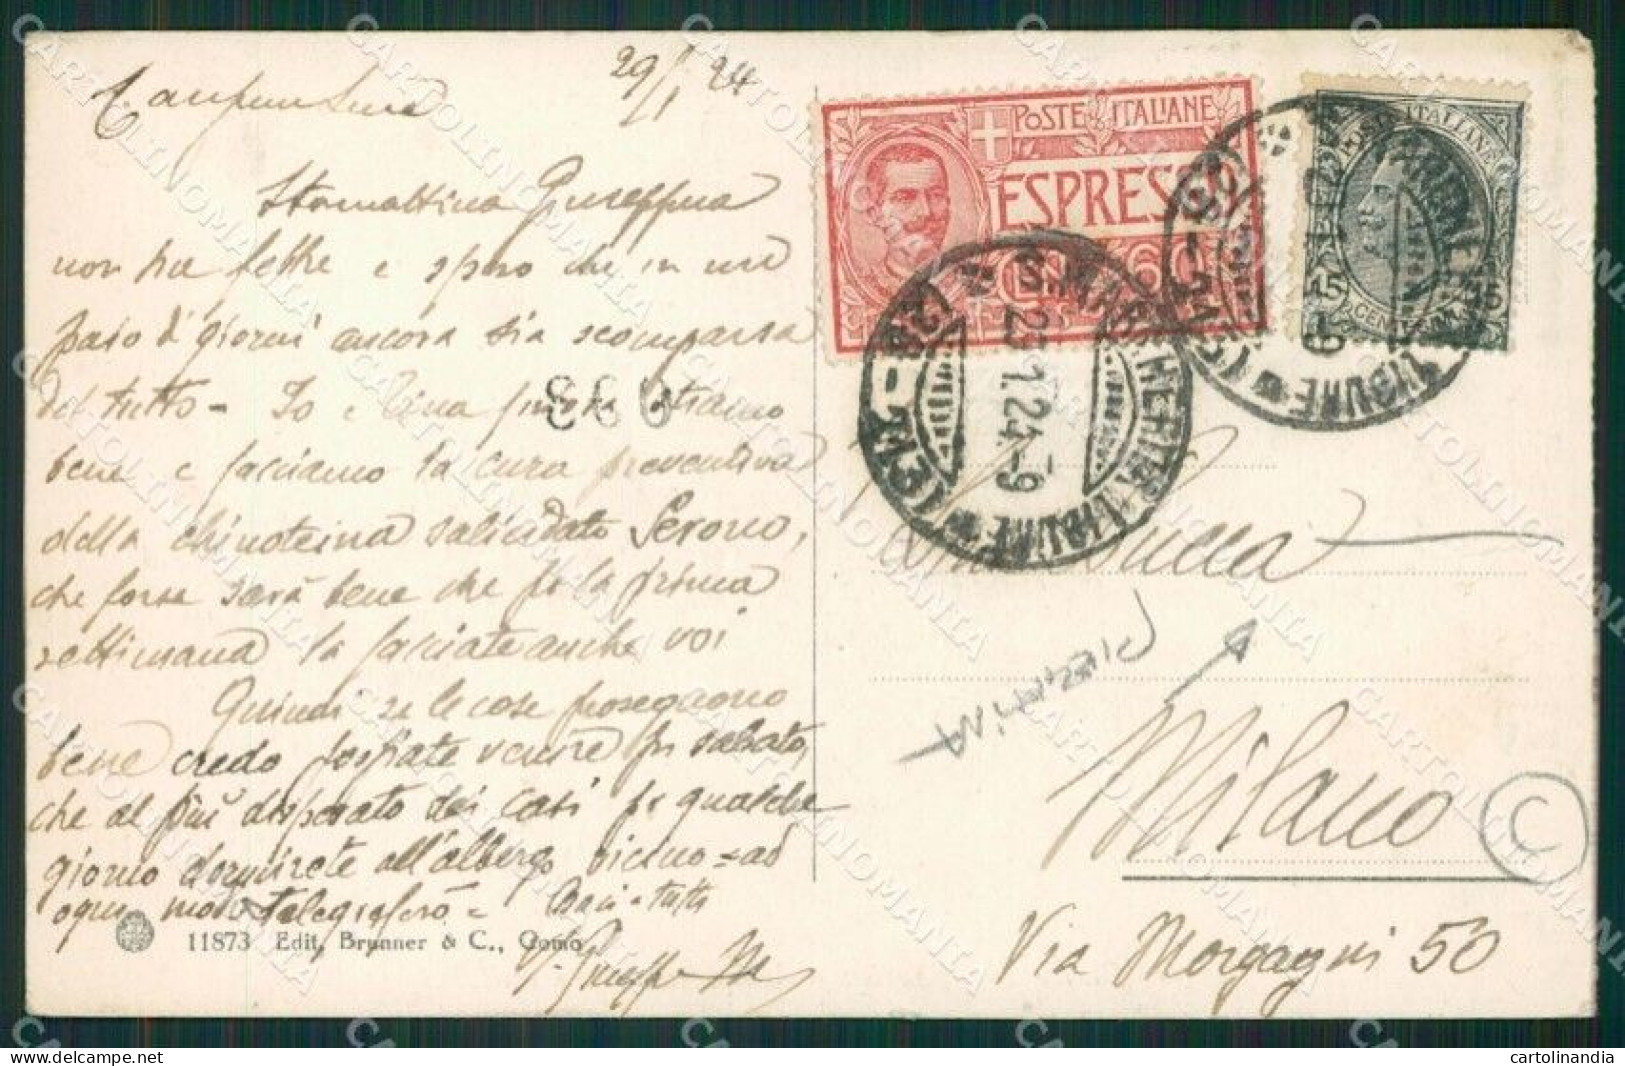 29/1 24
Stamattina Giuseppina
non ha febbre e spero che in un
paio di giorni ancora sia scomparsa
del tutto - Io e Lina stiamo
bene e facciamo la cura preventiva
della salicilato Serono,
che forse sarà bene che per la prima
settimana la facciate anche voi
Quindi se le cose proseguono
bene credo possiate venire per sabato,
che al più disperato dei casi per qualche
giorno dormirete all'albergo vicino = ad
ogni modo telegraferò = Baci a tutti
11873 Edit. Brunner & C., Como
POSTE ITALIANE
ESPRESSO
CENT 60
POSTE ITALIANE
15 CENTESIMI 15
S. MARGHERITA LIGURE
29.1.24-9
Lucca
Milano
C
Via Morgagni 50
CARTOLINOMANIA
cartolinandia